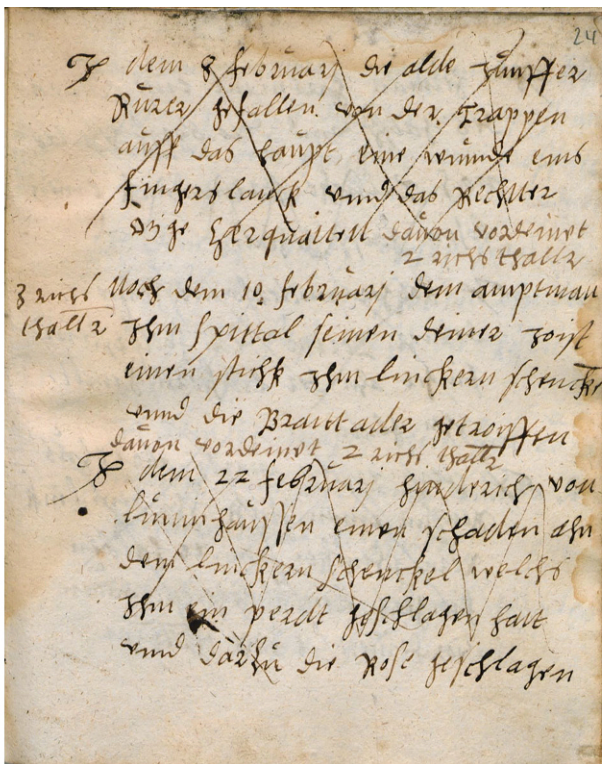 24
dem 8 februarij die alde Junffer
gefallen von der Trappen
auff das haupt, eine wunde eins
fingers lanck vnnd das Rechtter
Oige herquattett dauon vordeinet
2 richs thallr
3 richs
thallr
Noch dem 10 februarij dem amptman
Jhm spittal seinen deiner
einen stichk Jhm linckern schenckel
vnnd die Braitt ader getroiffen
dauon vordeinet 2 richs thallr
dem 22 februarij hinderich von
einen schaden ahn
dem linckern schenckel welchs
Jhm ein perdt geschlagen hatt
vnnd darzu die Rose geschlagen